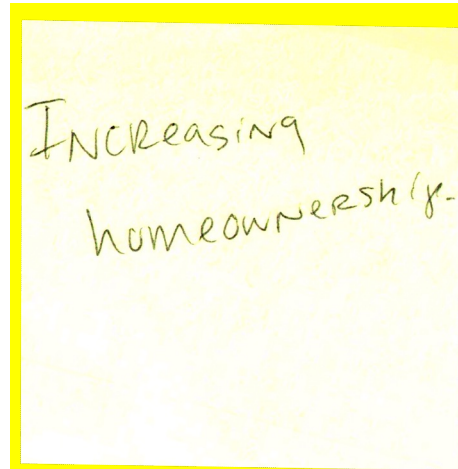 Increasing
homeownership.